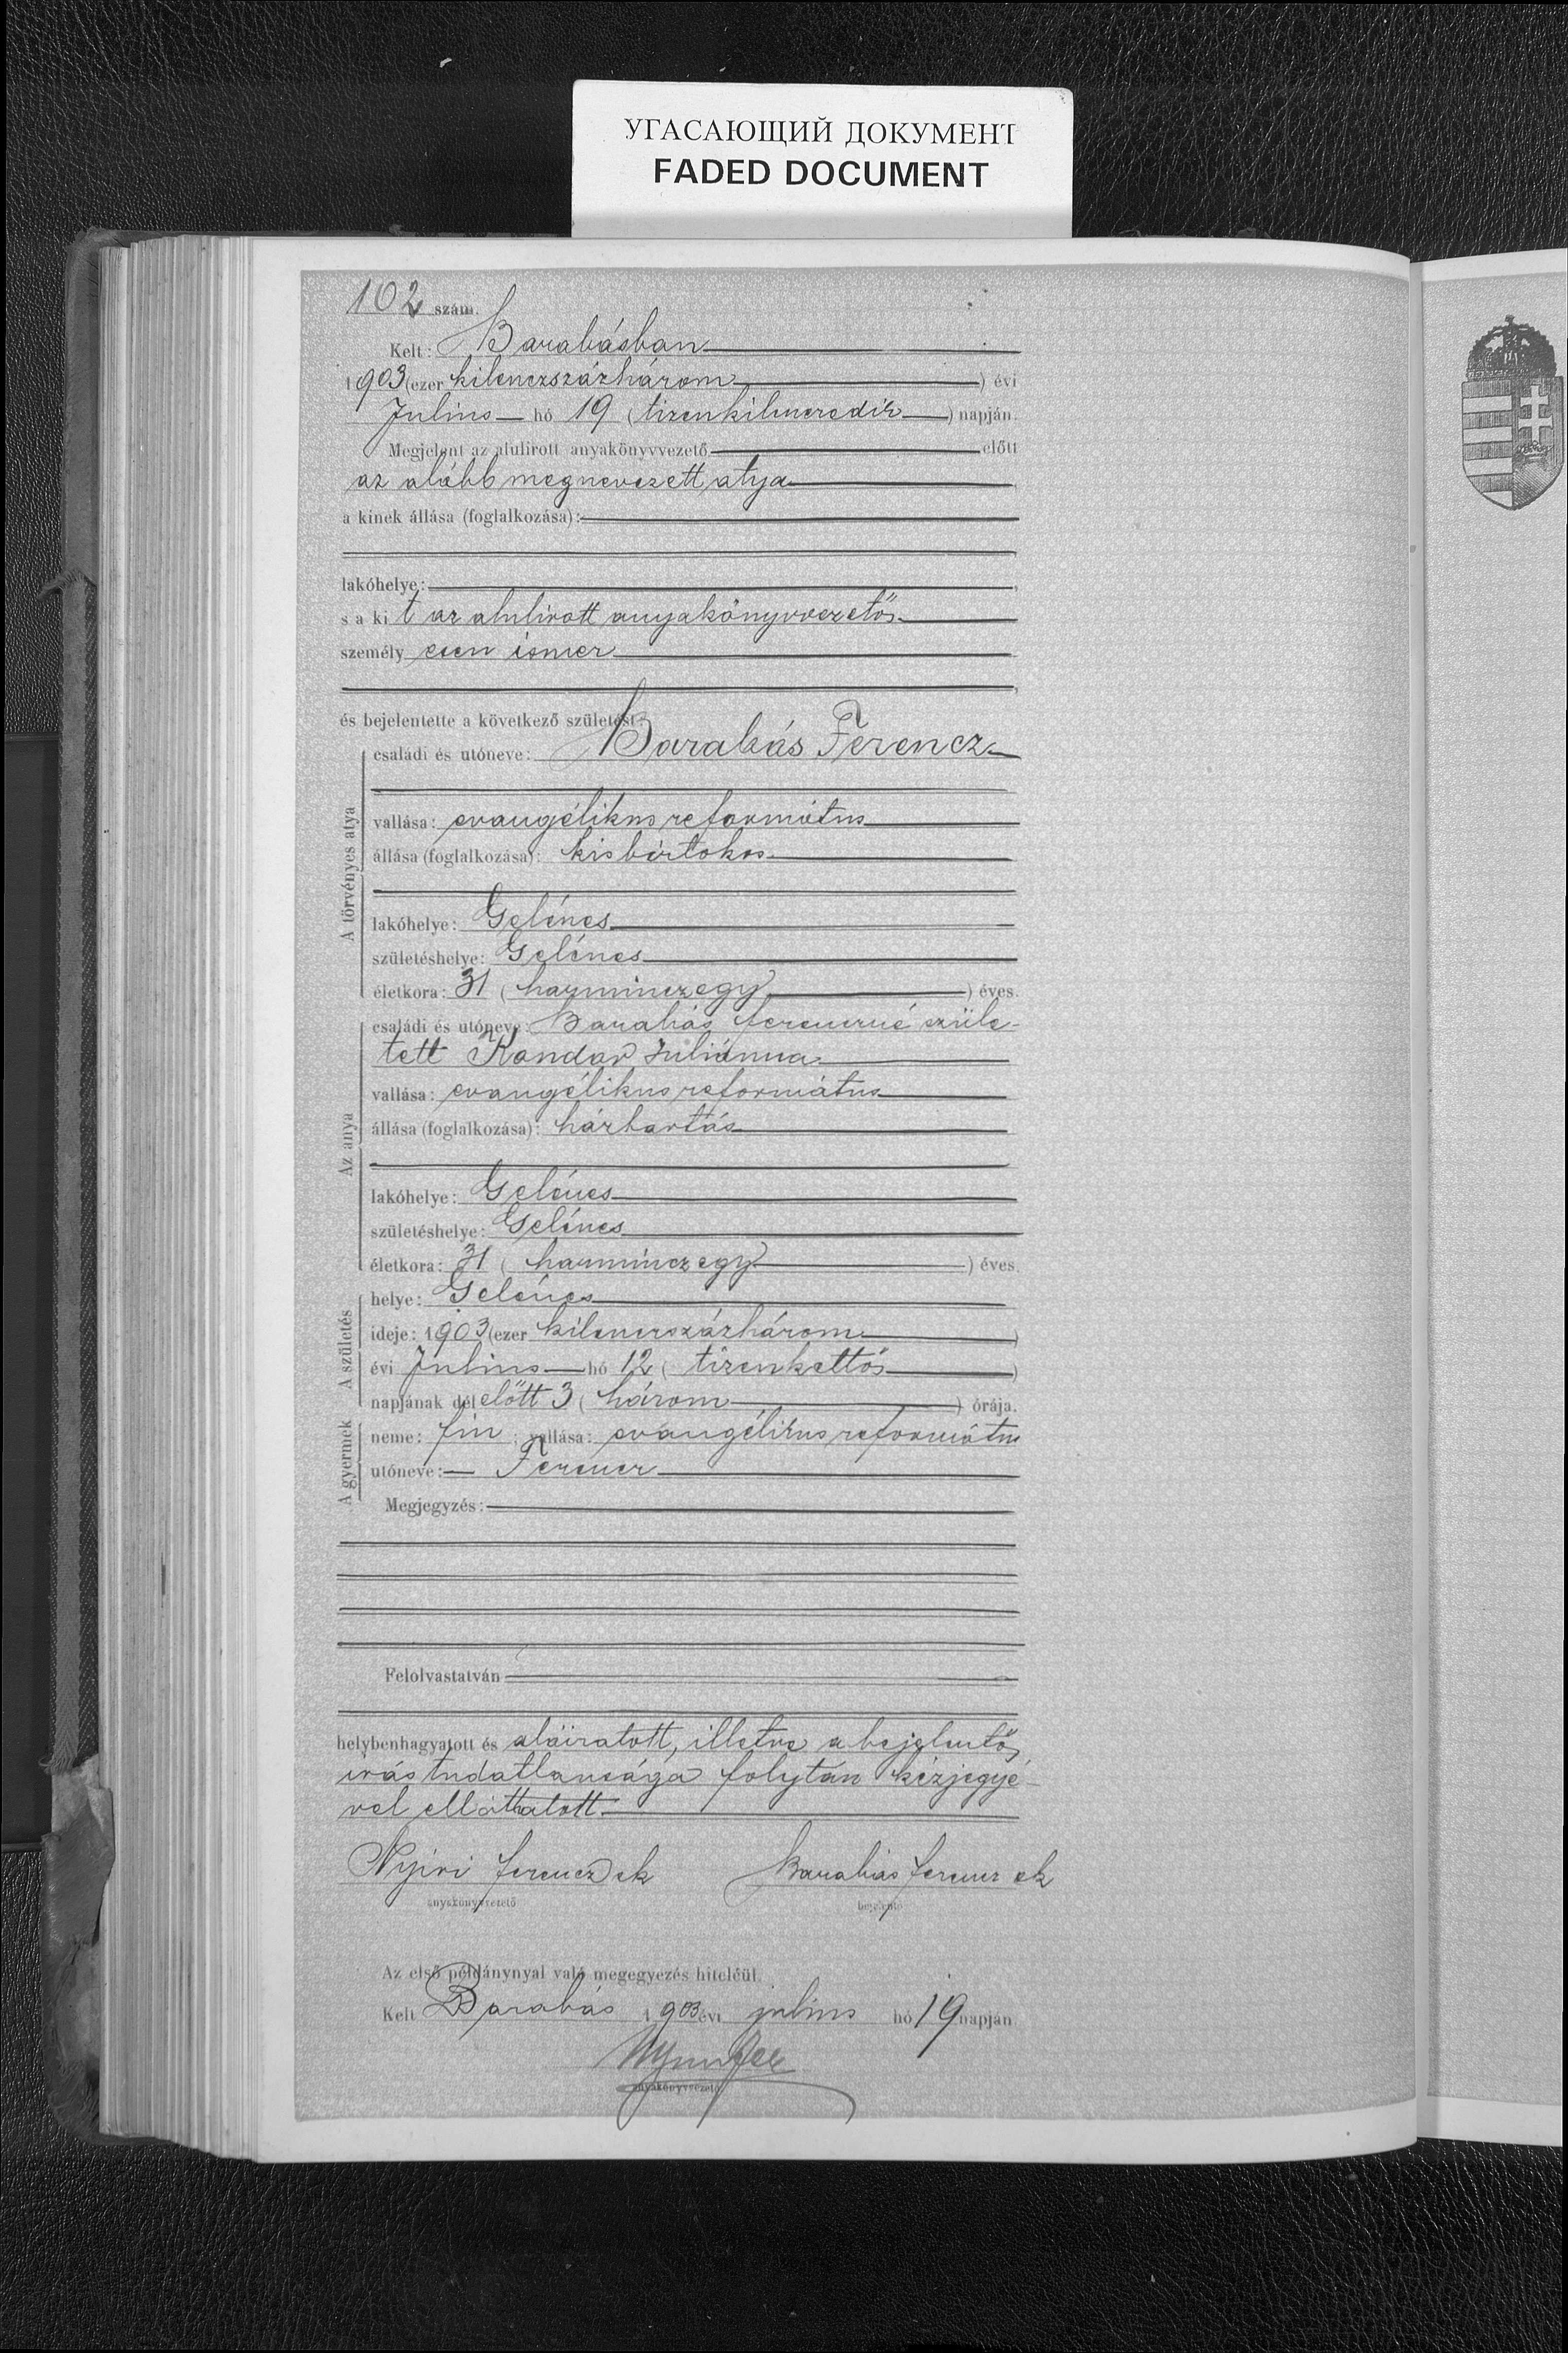 УГАСАЮЩИЙ ДОКУМЕНТ
FADED DOCUMENT
102 szám.
Kelt: Barabásban
1903 (ezer kilenczszázhárom) évi
Julius hó 19 (tizenkilenczedik) napján.
Megjelent az alulirott anyakönyvvezető előtt
az alább megnevezett atya
a kinek állása (foglalkozása):
lakóhelye:
s a ki t az alulirott anyakönyvvezető
személy esen ismer
és bejelentette a következő születést:
A törvényes atya
családi és utóneve: Barabás Ferencz
vallása: evangélikus református
állása (foglalkozása): kisbirtokos
lakóhelye: Gelénes
születéshelye: Gelénes
életkora: 31 (harminczegy) éves.
Az anya
családi és utóneve: Barabás Ferenczné szüle-
tett Kandar Juliánna
vallása: evangélikus református
állása (foglalkozása): háztartás
lakóhelye: Gelénes
születéshelye: Gelénes
életkora: 31 (harminczegy) éves.
A születés
helye: Gelénes
ideje: 1903 (ezer kilenczszázhárom)
évi Julius hó 12 (tizenkettő)
napjának dél előtt 3 (három) órája.
A gyermek
neme: fiu; vallása: evangélikus református
utóneve: Ferencz
Megjegyzés:
Felolvastatván
helybenhagyatott és aláiratott, illetve a bejelentő
irástudatlansága folytán kézjegyé-
vel elláttatott.
Nyiri Ferencz sk Barabás Ferencz sk
anyakönyvvezető bejelentő
Az első példánynyal való megegyezés hiteléül.
Kelt Barabás 1903 évi julius hó 19 napján
anyakönyvvezető